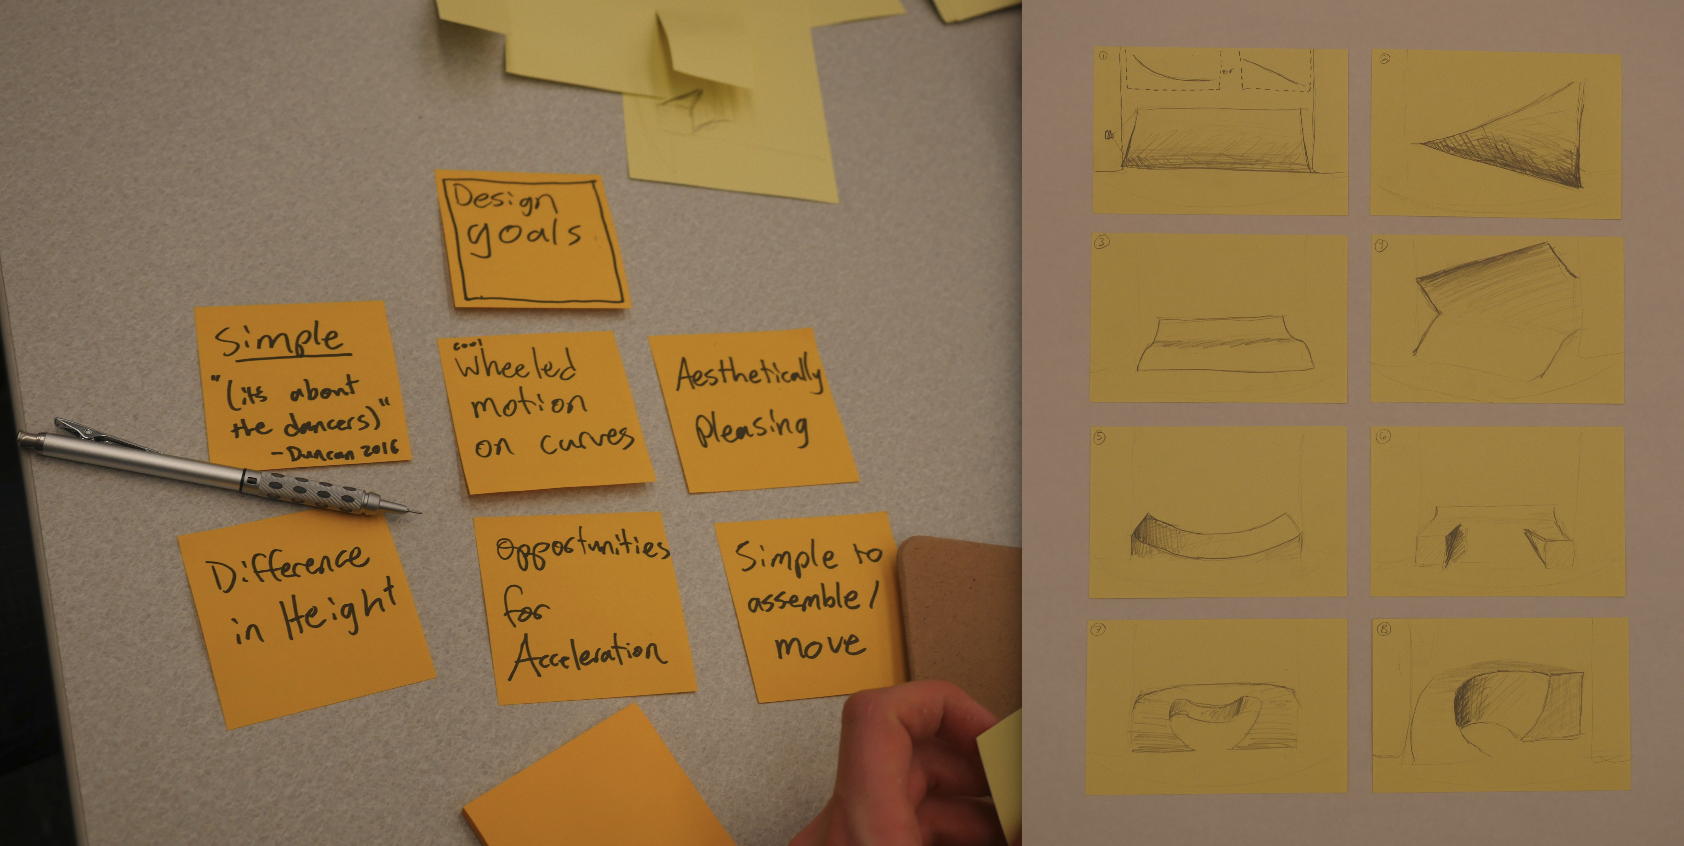 Design
goals
Simple
"(its about
the dancers)"
- Duncan 2016
cool
Wheeled
motion
on curves
Aesthetically
pleasing
Difference
in Height
Opportunities
for
Acceleration
Simple to
assemble/
move
1
or
2
3
4
5
6
7
8